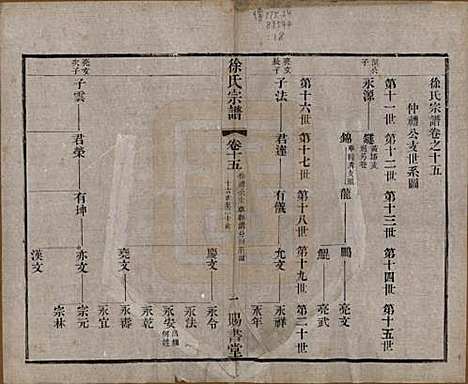 徐氏宗譜卷之十五
仲禮公支世系圖
第十一世 第十二世 第十三世 第十四世 第十五世
永源 錦 龍 鵬 亮文
鯤 亮武
第十六世 第十七世 第十八世 第十九世 第二十世
亮文長子 子法 君達 有儀 允文 永祥
永年
慶文 永令
永法
徐氏宗譜
卷十五
一 賜書堂
亮文次子 子雲 君榮 有坤 亦文 宗元
堯文 永安
永乾
永壽
永宜
漢文 宗林